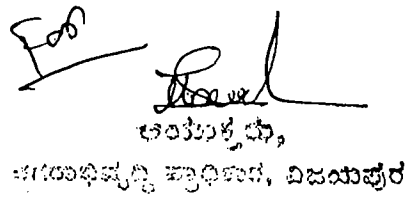 ಆಯುಕ್ತರು,
ನಗರಾಭಿವೃದ್ಧಿ ಪ್ರಾಧಿಕಾರ, ವಿಜಯಪುರ